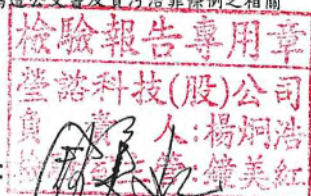 偽造公文書及貪污治罪條例之相關
檢驗報告專用章
瑩諮科技(股)公司
負責人:楊炯浩
鐘美紅